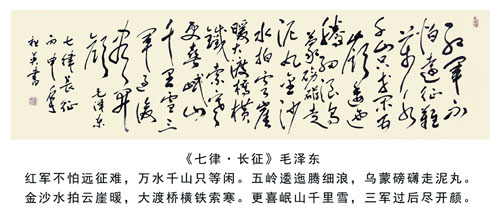 红军不
怕远征难
万水
千山只等闲五
岭逶迤
腾细浪乌
蒙磅礴走
泥丸金沙
水拍云崖
暖大渡桥横
铁索寒
更喜岷山
千里雪三
军过后
尽开
颜 毛泽东
七律长征
丙申年
书
《七律·长征》毛泽东
红军不怕远征难，万水千山只等闲。五岭逶迤腾细浪，乌蒙磅礴走泥丸。
金沙水拍云崖暖，大渡桥横铁索寒。更喜岷山千里雪，三军过后尽开颜。